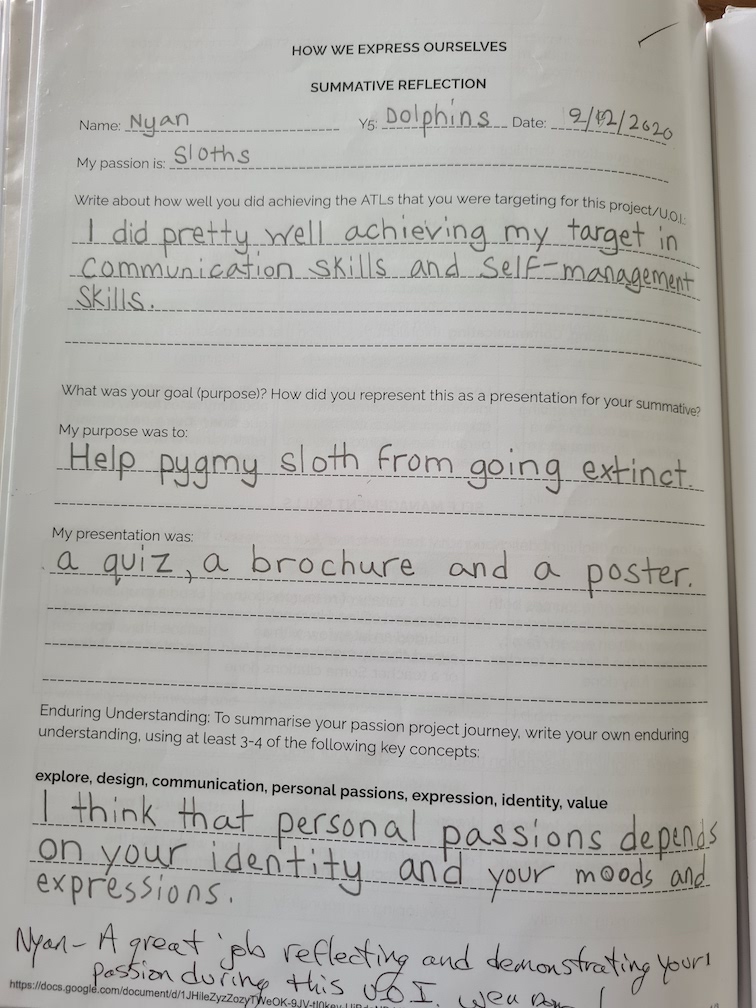 HOW WE EXPRESS OURSELVES
SUMMATIVE REFLECTION
Name: Nyan Y5: Dolphins Date: 2/12/2020
My passion is: Sloths
Write about how well you did achieving the ATLs that you were targeting for this project/U.O.I.:
I did pretty well achieving my target in
communication skills and self-management
skills.
What was your goal (purpose)? How did you represent this as a presentation for your summative?
My purpose was to:
Help pygmy sloth from going extinct.
My presentation was:
a quiz, a brochure and a poster.
Enduring Understanding: To summarise your passion project journey, write your own enduring
understanding, using at least 3-4 of the following key concepts:
explore, design, communication, personal passions, expression, identity, value
I think that personal passions depends
on your identity and your moods and
expressions.
Nyan - A great job reflecting and demonstrating your
passion during this UOI. Well Done!